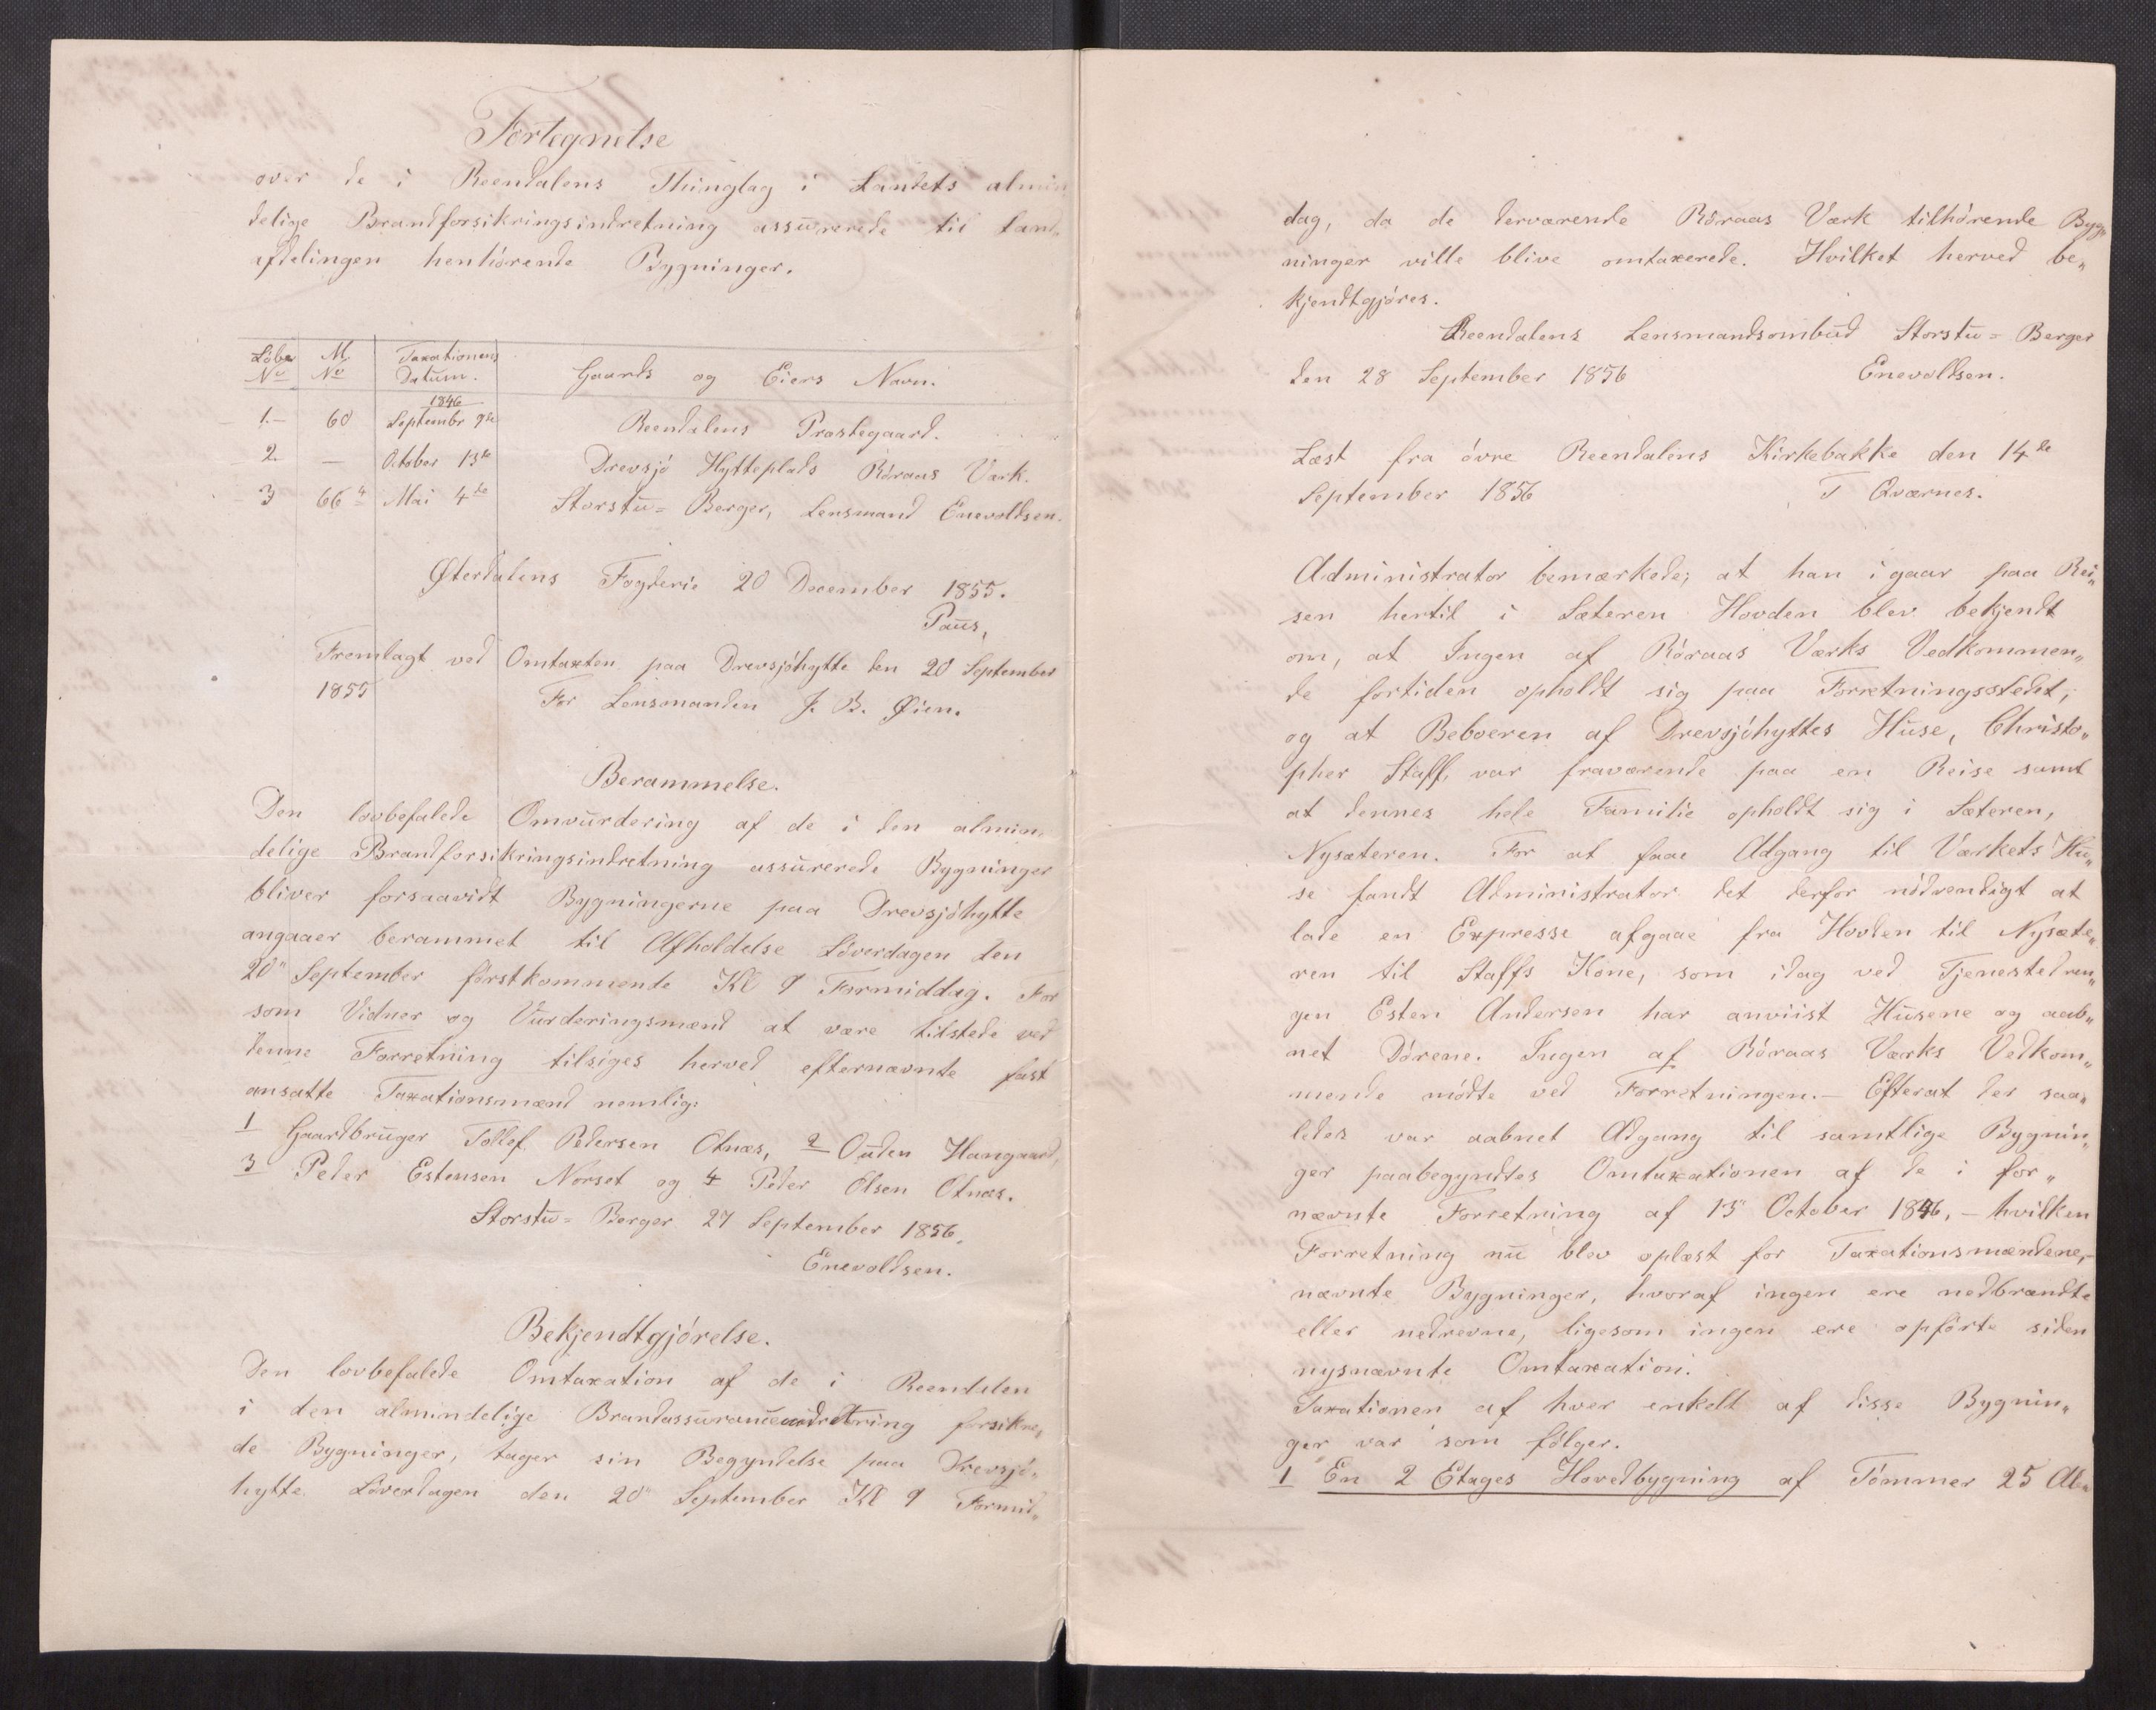 Fortegnelse
over de i Reendalens Thinglag i Landets almin
delige Brandforsikringsindretning assurerede til Land„
afdelingen henhørende Bygninger.
Löbe No M. No Taxationens Datum. Gaards og Eiers Navn.
1846
1.- 60 Septembr 9de Reendalens Præstegaard.
2. — October 13de Drevsjö Hytteplads Röraas Værk.
3 66a Mai 4de Storstu= Berger, Lensmand Enevoldsen.
Østerdalens Fogderie 20 December 1855.
Paus,
Fremlagt ved Omtaxten paa Drevsjöhytte den 20 September
1855 For Lensmanden J. B. Øien.
Berammelse.
Den lovbefalede Omvurdering af de i den almin„
delige Brandforsikringsindretning assurerede Bygninger
bliver forsaavidt Bygningerne paa Drevsjöhytte
angaaer berammet til Afholdelse Löverdagen den
20" September förstkommende Kl 9 Formiddag. For
som Vidner og Vurderingsmænd at være tilstede ved
denne Forretning tilsiges herved efternævnte fast
ansatte Taxationsmænd nemlig:
1 Gaardbruger Tollef Pedersen Otnæs, 2 Ouden Haugaard,
3 Peder Estensen Norset og 4 Peder Olsen Otnæs.
Storstu= Berger 27 September 1856.
Enevoldsen.
Bekjendtgjörelse.
Den lovbefalede Omtaxation af de i Reendalen
i den almindelige Brandassuranceindretning forsikre„
de Bygninger, tager sin Begyndelse paa Drevsjö„
hytte Löverdagen den 20" September Kl 9 Formid„
dag, da de derværende Röraas Værk tilhörende Byg„
ninger ville blive omtaxerede. Hvilket herved be„
kjendtgjöres.
Reendalens Lensmandsombud Storstu= Berger
den 28 September 1856 Enevoldsen.
Læst fra övre Reendalens Kirkebakke den 14de
September 1856 T Qværnes.
Administrator bemærkede; at han igaar paa Rei„
sen hertil i Sæteren Hovden blev bekjendt
om, at Ingen af Röraas Værks Vedkommen„
de fortiden opholdt sig paa Forretningsstedet;
og at Beboeren af Drevsjöhyttes Huse, Christo„
pher Staff, var fraværende paa en Reise samt
at dennes hele Familie opholdt sig i Sæteren,
Nysæteren. For at faae Adgang til Værkets Hu„
se fandt Administrator det derfor nödvendigt at
lade en Expresse afgaae fra Hovden til Nysæte„
ren til Staffs Kone, som idag ved Tjenestedren„
gen Esten Andersen har anviist Husene og aab„
net Dörene. Ingen af Röraas Værks Vedkom„
mende mödte ved Forretningen.— Efterat der saa„
ledes var aabnet Adgang til samtlige Bygnin„
ger paabegyndtes Omtaxationen af de i for„
nævnte Forretning af 13" October 1846, – hvilken
Forretning nu blev oplæst for Taxationsmændene,–
nævnte Bygninger, hvoraf ingen ere nedbrændte
eller nedrevne, ligesom ingen ere opförte siden
nysnævnte Omtaxation.
Taxationen af hver enkelt af disse Bygnin„
ger var som fölger.
1 En 2 Etages Hovedbygning af Tömmer 25 Al„